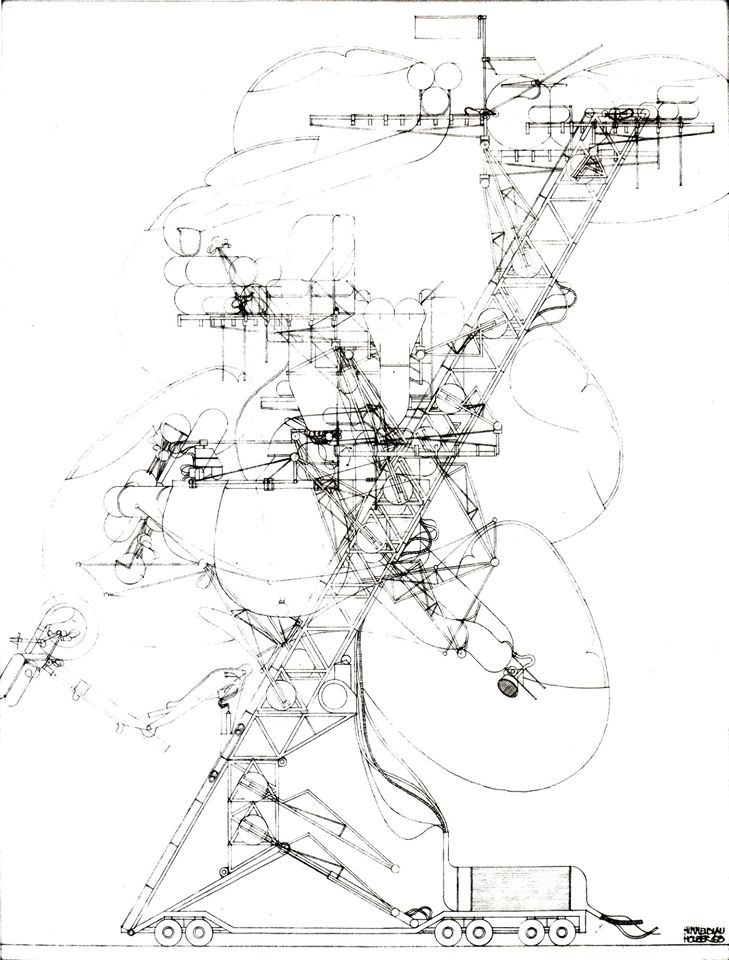 HIMMELBLAU
HOLZER 68